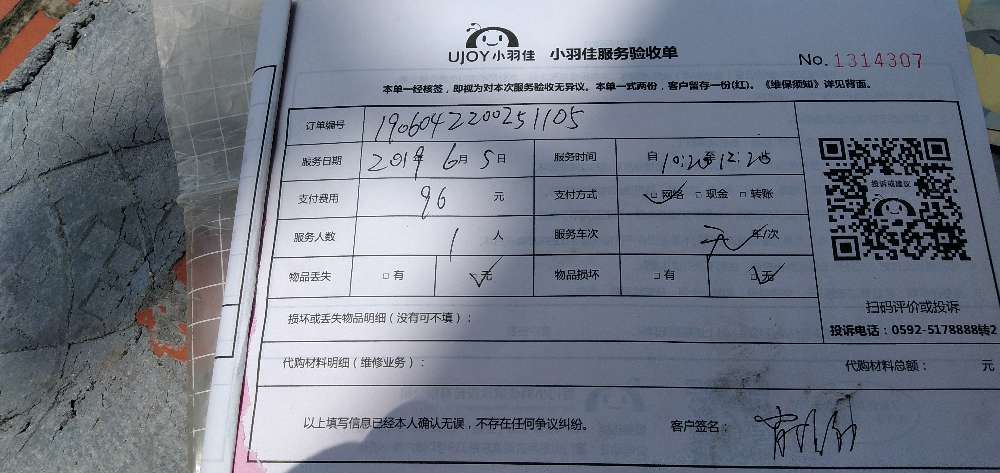 UJOY小羽佳 小羽佳服务验收单
No. 1314307
本单一经核签，即视为对本次服务验收无异议。本单一式两份，客户留存一份(红)。《维保须知》详见背面。
订单编号 190604220025 1105
服务日期 2019年 6月 5日 服务时间 自10:20至12:20
支付费用 96 元 支付方式 □网络 □现金 □转账
服务人数 1 人 服务车次 无 车/次
物品丢失 □有 □无 物品损坏 □有 □无
投诉或建议
扫码评价或投诉
投诉电话：0592-5178888转2
损坏或丢失物品明细（没有可不填）：
代购材料明细（维修业务）： 代购材料总额： 元
以上填写信息已经本人确认无误，不存在任何争议纠纷。 客户签名：